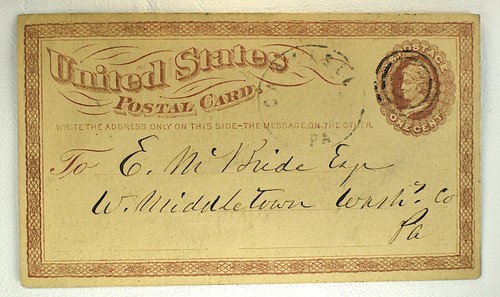 United States
POSTAL CARD.
U.S. POSTAGE
ONE CENT
WRITE THE ADDRESS ONLY ON THIS SIDE-THE MESSAGE ON THE OTHER
PA
To E. McBride Esqr
W. Middletown Wash'. Co
Pa